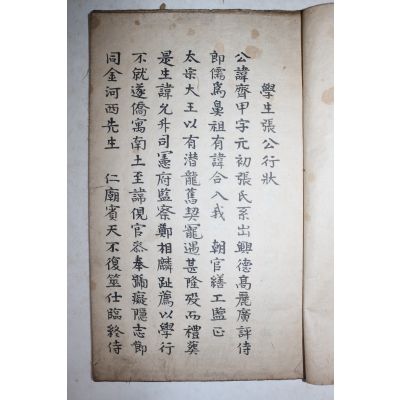 學生張公行狀
公諱齊甲字元初張氏系出興德高麗廣評侍
郎儒爲鼻祖有諱合入我 朝官繕工監正
太宗大王以有潜龍舊契寵遇甚隆歿而禮葬
是生諱允升司憲府監察鄭相麟趾薦以學行
不就遂僑寓南土至諱俔官叅奉號癡隱志節
同金河西先生 仁廟賓天不復筮仕臨終侍